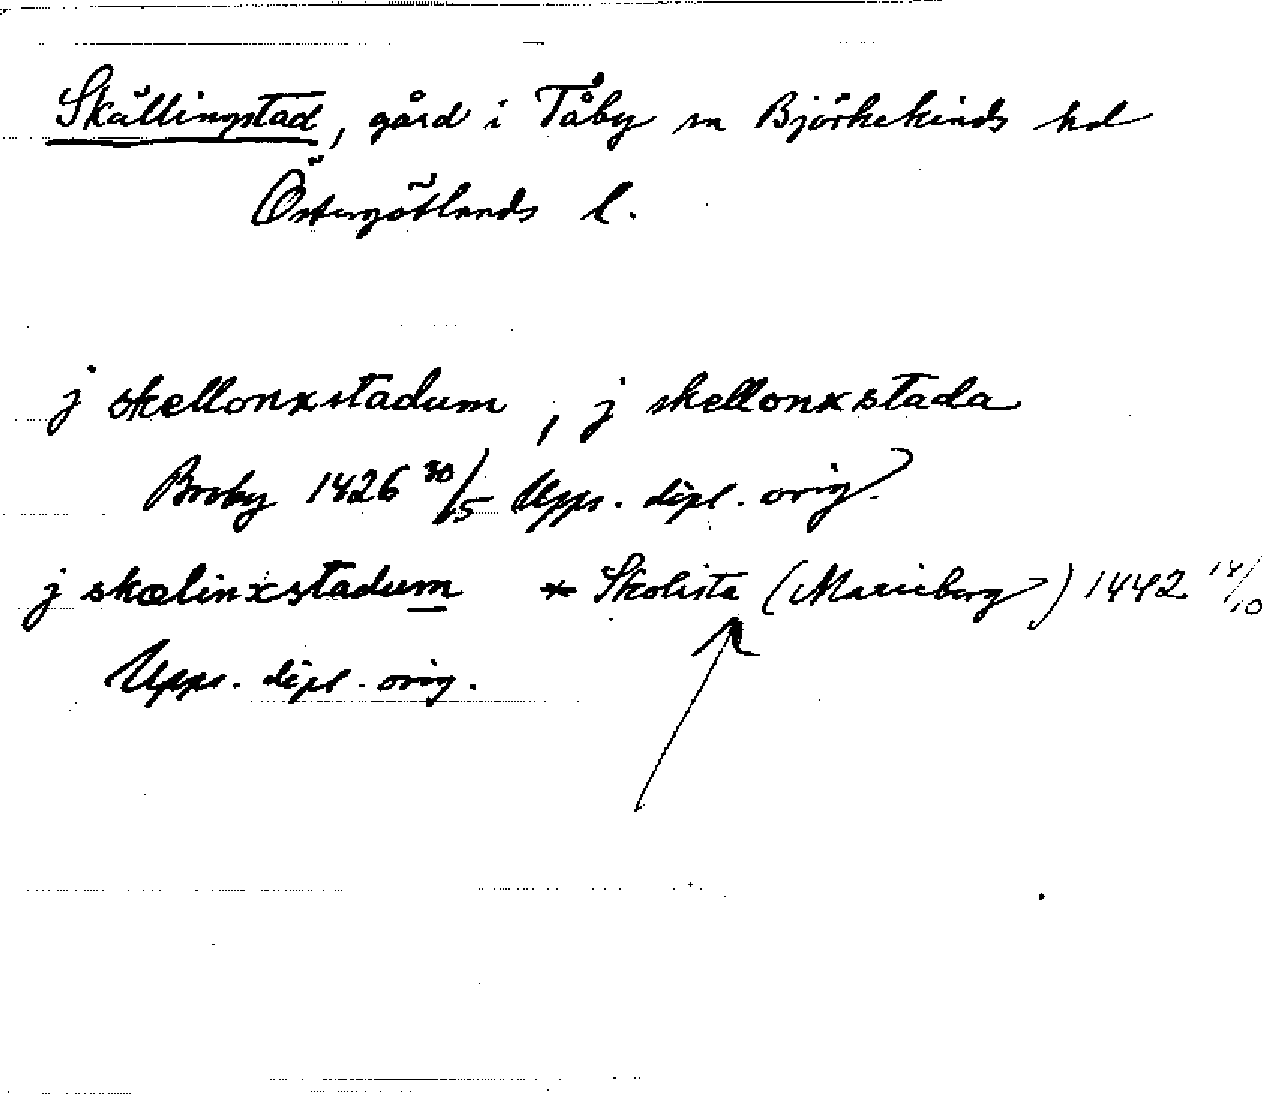 Skällingstad, gård i Tåby sn Björkekinds hd
Östergötlands l.
j skellonxstadum, j skellonxstada
Broby 1426 30/5 Upps. dipl. orig.
j skælinxstadum * Skolista (Marieberg) 1442 18/10
Upps. dipl. orig.